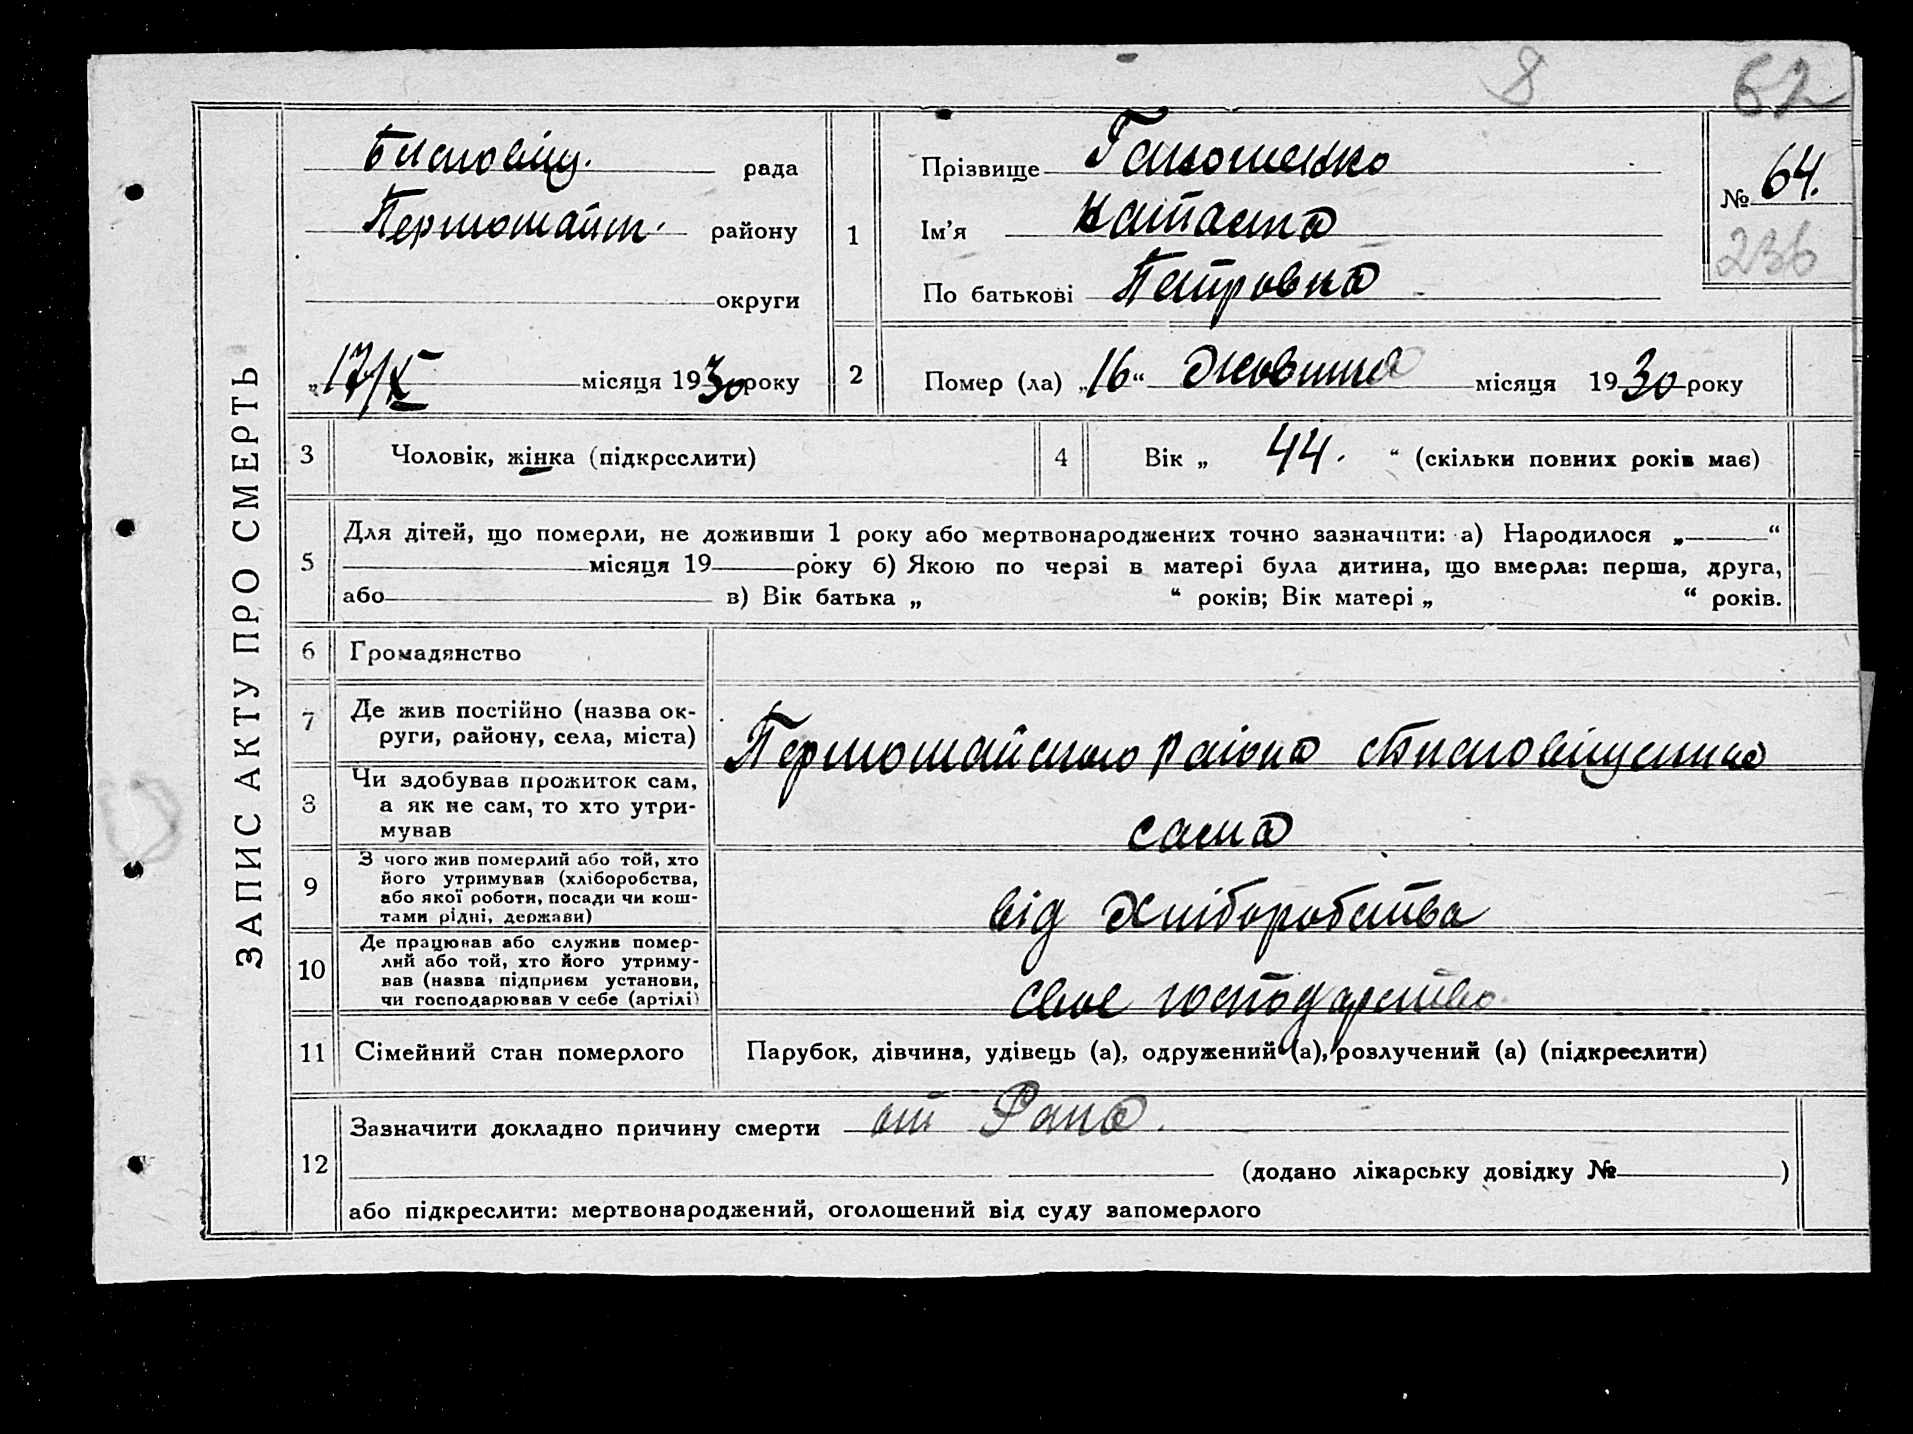 8 62
ЗАПИС АКТУ ПРО СМЕРТЬ
рада
района
округи
„17/X місяця 1930 року
1
Прізвище
Ім'я
По батькові Петровна
№ 64.
236
2
Помер (ла) „16“ Жовтня місяця 1930 року
3 Чоловік, жінка (підкреслити)
4 Вік „ 44. “ (скільки повних років має)
5
Для дітей, що померли, не доживши 1 року або мертвонароджених точно зазначити: а) Народилося „ “
місяця 19 року б) Якою по черзі в матері була дитина, що вмерла: перша, друга,
або в) Вік батька „ “ років; Вік матері „ “ років.
6 Громадянство
7 Де жив постійно (назва ок-
руги, району, села, міста)
Первомайского Району
8 Чи здобував прожиток сам,
а як не сам, то хто утри-
мував
сама
9 З чого жив померлий або той, хто
його утримував (хліборобства,
або якої роботи, посади чи кош-
тами рідні, держави)
від Хліборобства
10 Де працював або служив помер-
лий або той, хто його утриму-
вав (назва підприєм установи,
чи господарював у себе (артілі)
своє господарство
11 Сімейний стан померлого
Парубок, дівчина, удівець (а), одружений (а), розлучений (а) (підкреслити)
12
Зазначити докладно причину смерти от Рака.
(додано лікарську довідку № )
або підкреслити: мертвонароджений, оголошений від суду запомерлого